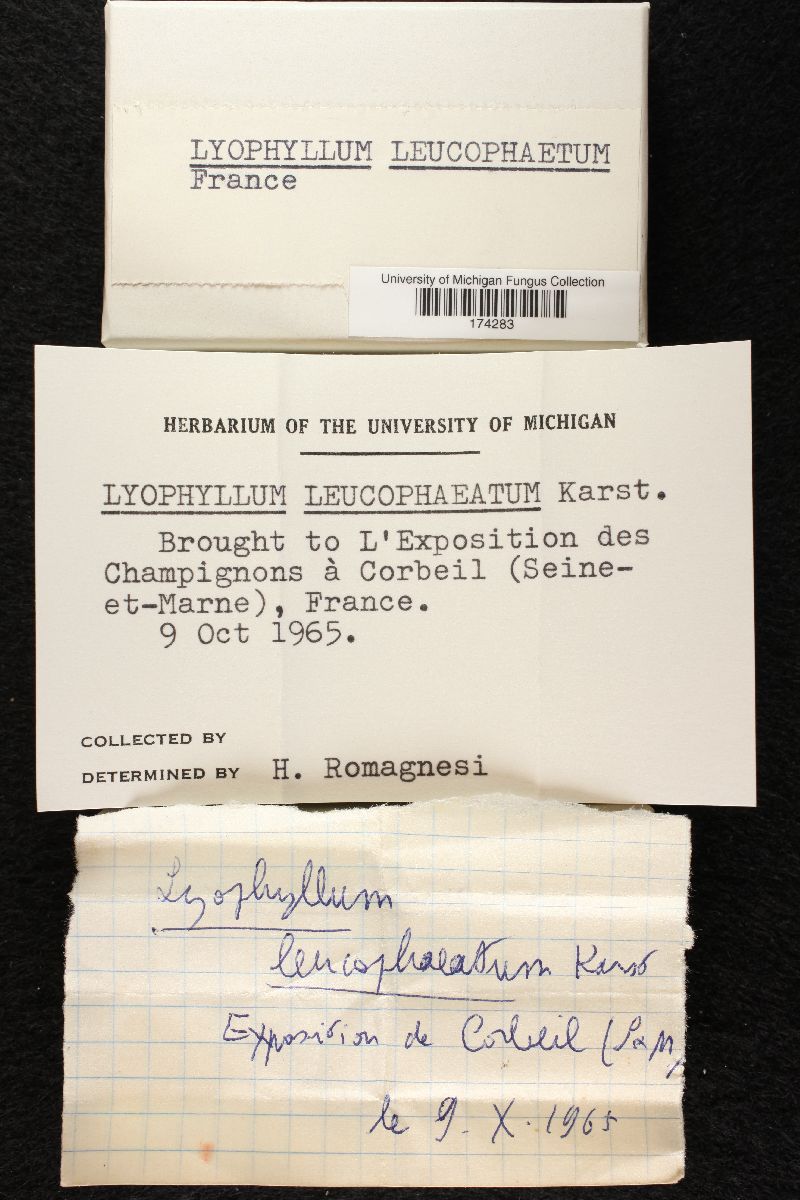 LYOPHYLLUM LEUCOPHAETUM
France
University of Michigan Fungus Collection
174283
HERBARIUM OF THE UNIVERSITY OF MICHIGAN
LYOPHYLLUM LEUCOPHAEATUM Karst.
Brought to L'Exposition des
Champignons à Corbeil (Seine-
et-Marne), France.
9 Oct 1965.
COLLECTED BY
DETERMINED BY H. Romagnesi
Lyophyllum
leucophaeatum Karst
Exposition de Corbeil (S&M)
le 9. X. 1965